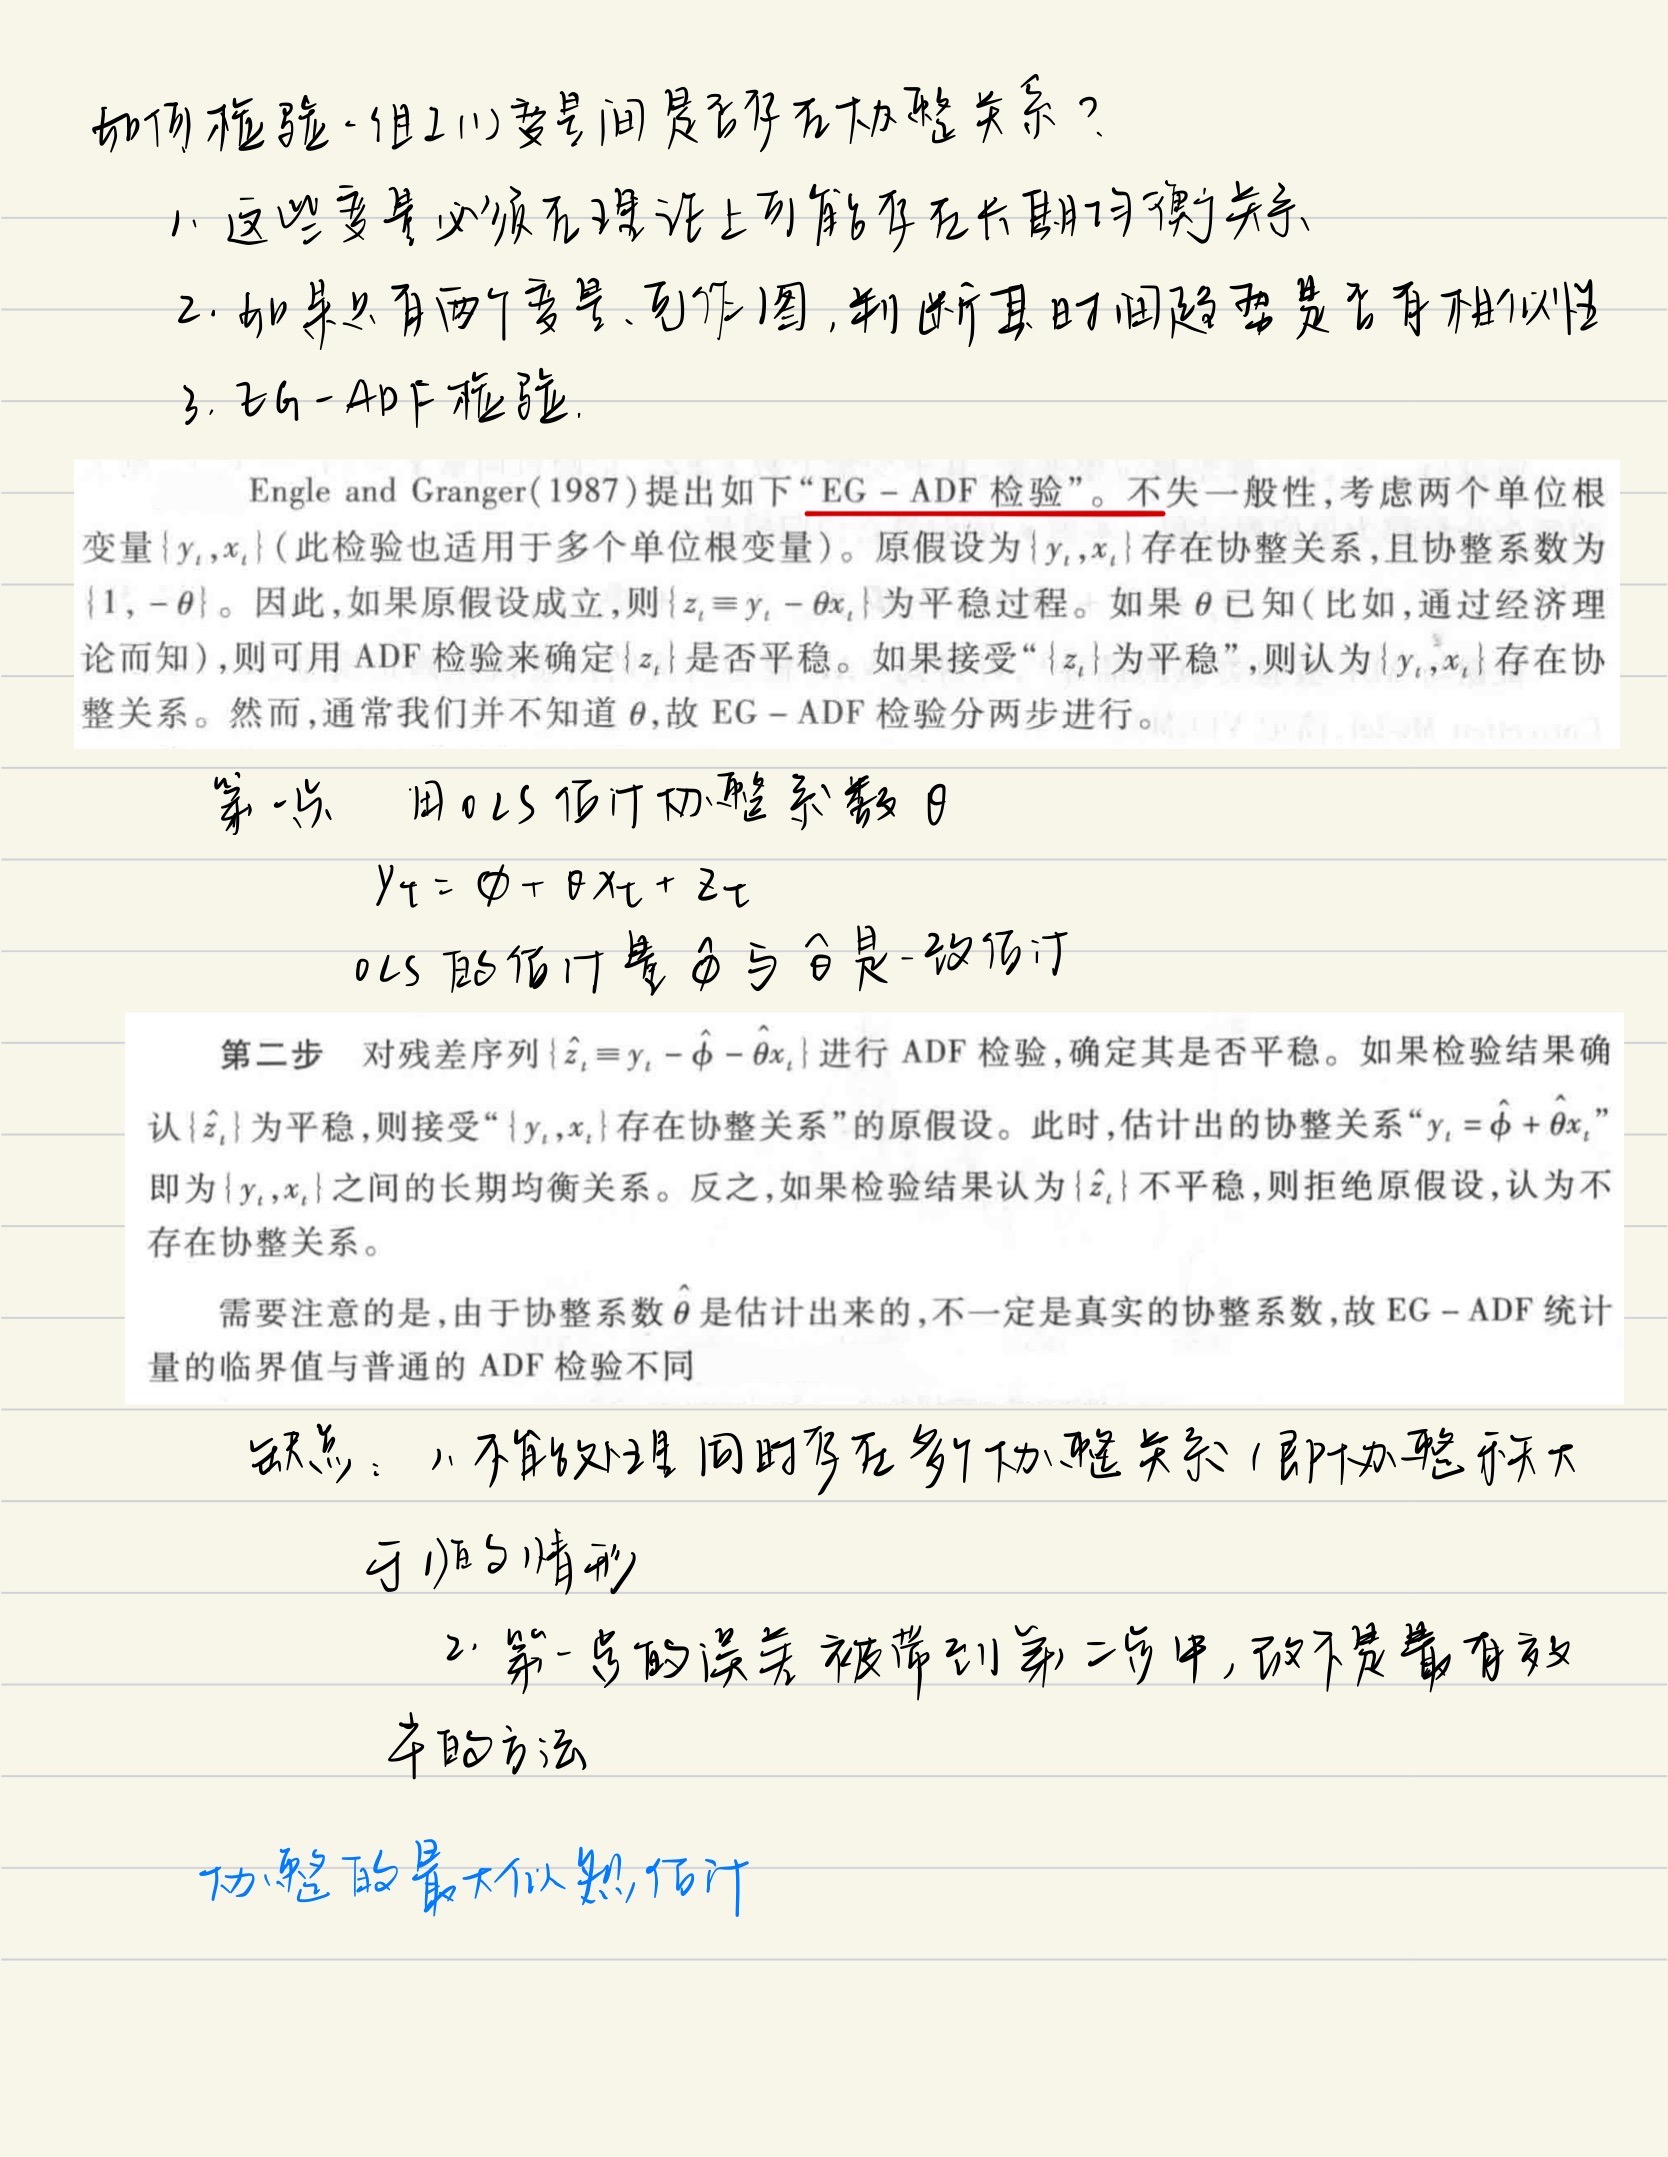 如何检验一组I(1)变量间是否存在协整关系?
1. 这些变量必须在理论上可能存在长期均衡关系
2. 如果只有两个变量、可作图,判断其时间趋势是否有相似性
3. EG-ADF检验.
Engle and Granger(1987)提出如下“EG - ADF 检验”。不失一般性,考虑两个单位根
变量{yₜ,xₜ}(此检验也适用于多个单位根变量)。原假设为{yₜ,xₜ}存在协整关系,且协整系数为
{1, -θ}。因此,如果原假设成立,则{zₜ≡yₜ - θxₜ}为平稳过程。如果 θ 已知(比如,通过经济理
论而知),则可用 ADF 检验来确定{zₜ}是否平稳。如果接受“{zₜ}为平稳”,则认为{yₜ,xₜ}存在协
整关系。然而,通常我们并不知道 θ,故 EG - ADF 检验分两步进行。
第一步 用OLS估计协整系数 θ
yₜ = φ + θxₜ + zₜ
OLS 的估计量 φ̂ 与 θ̂ 是一致估计
第二步 对残差序列{ẑₜ≡yₜ - φ̂ - θ̂xₜ}进行 ADF 检验,确定其是否平稳。如果检验结果确
认{ẑₜ}为平稳,则接受“{yₜ,xₜ}存在协整关系”的原假设。此时,估计出的协整关系“yₜ = φ̂ + θ̂xₜ”
即为{yₜ,xₜ}之间的长期均衡关系。反之,如果检验结果认为{ẑₜ}不平稳,则拒绝原假设,认为不
存在协整关系。
需要注意的是,由于协整系数 θ̂ 是估计出来的,不一定是真实的协整系数,故 EG - ADF 统计
量的临界值与普通的 ADF 检验不同
缺点: 1. 不能处理同时存在多个协整关系(即协整秩大
于1)的情形
2. 第一步的误差被带到第二步中,故不是最有效
率的方法
协整的最大似然估计